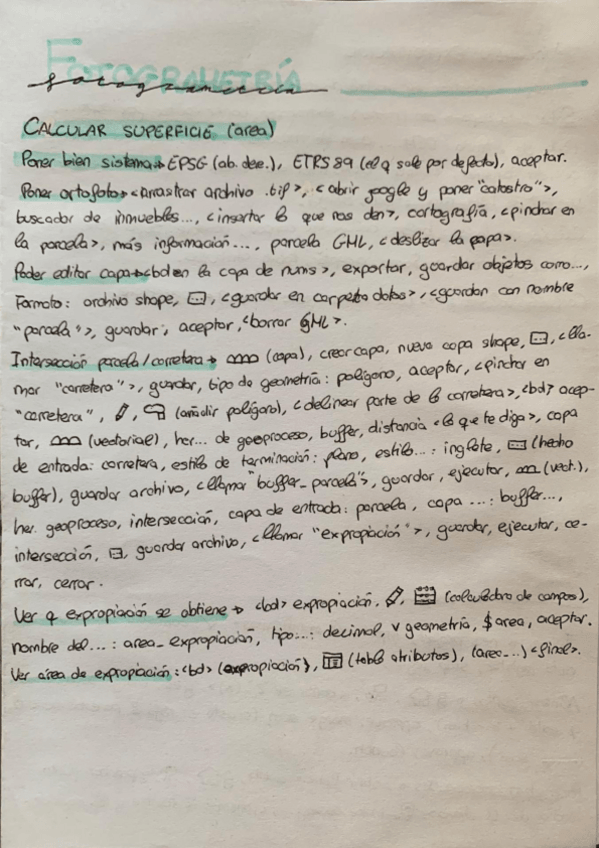 FOTOGRAMETRÍA
fotogrametría
CALCULAR SUPERFICIE (area)
Poner bien sistema→ EPSG (ab. dee.), ETRS89 (el q sale por defecto), aceptar.
Poner ortofoto→ <Arrastrar archivo .tif>, <abrir google y poner "catastro">,
buscador de inmuebles..., <insertar lo que nos den>, cartografía, <pinchar en
la parcela>, más información..., parcela GML, <deslizar la papa>.
Poder editar capa→<bd en la capa de nums>, exportar, guardar objetos como...,
Formato: archivo shape, ..., <guardar en carpeta datos>, <guardar con nombre
"parcela">, guardar, aceptar, <borrar GML>.
Intersección parcela/carretera→ (capa), crear capa, nueva capa shape, ..., <lla-
mar "carretera">, guardar, tipo de geometría: polígono, aceptar, <pinchar en
"carretera", (añadir polígono), <delinear parte de la carretera>, <bd> acep-
tar, (vectorial), her... de geoproceso, buffer, distancia <lo que te diga>, capa
de entrada: carretera, estilo de terminación: plano, estilo...: inglete, ... (hecho
buffer), guardar archivo, <llamar "buffer_parcela">, guardar, ejecutar, (vect.),
her. geoproceso, intersección, capa de entrada: parcela, capa ...: buffer...,
intersección, ..., guardar archivo, <llamar "expropiación">, guardar, ejecutar, ce-
rrar, cerrar.
Ver q expropiación se obtiene→ <bd> expropiación, (calculadora de campos),
nombre del...: area_expropiación, tipo...: decimal, v geometría, $area, aceptar.
Ver área de expropiación: <bd> (expropiación), (tabla atributos), (area_...) <final>.